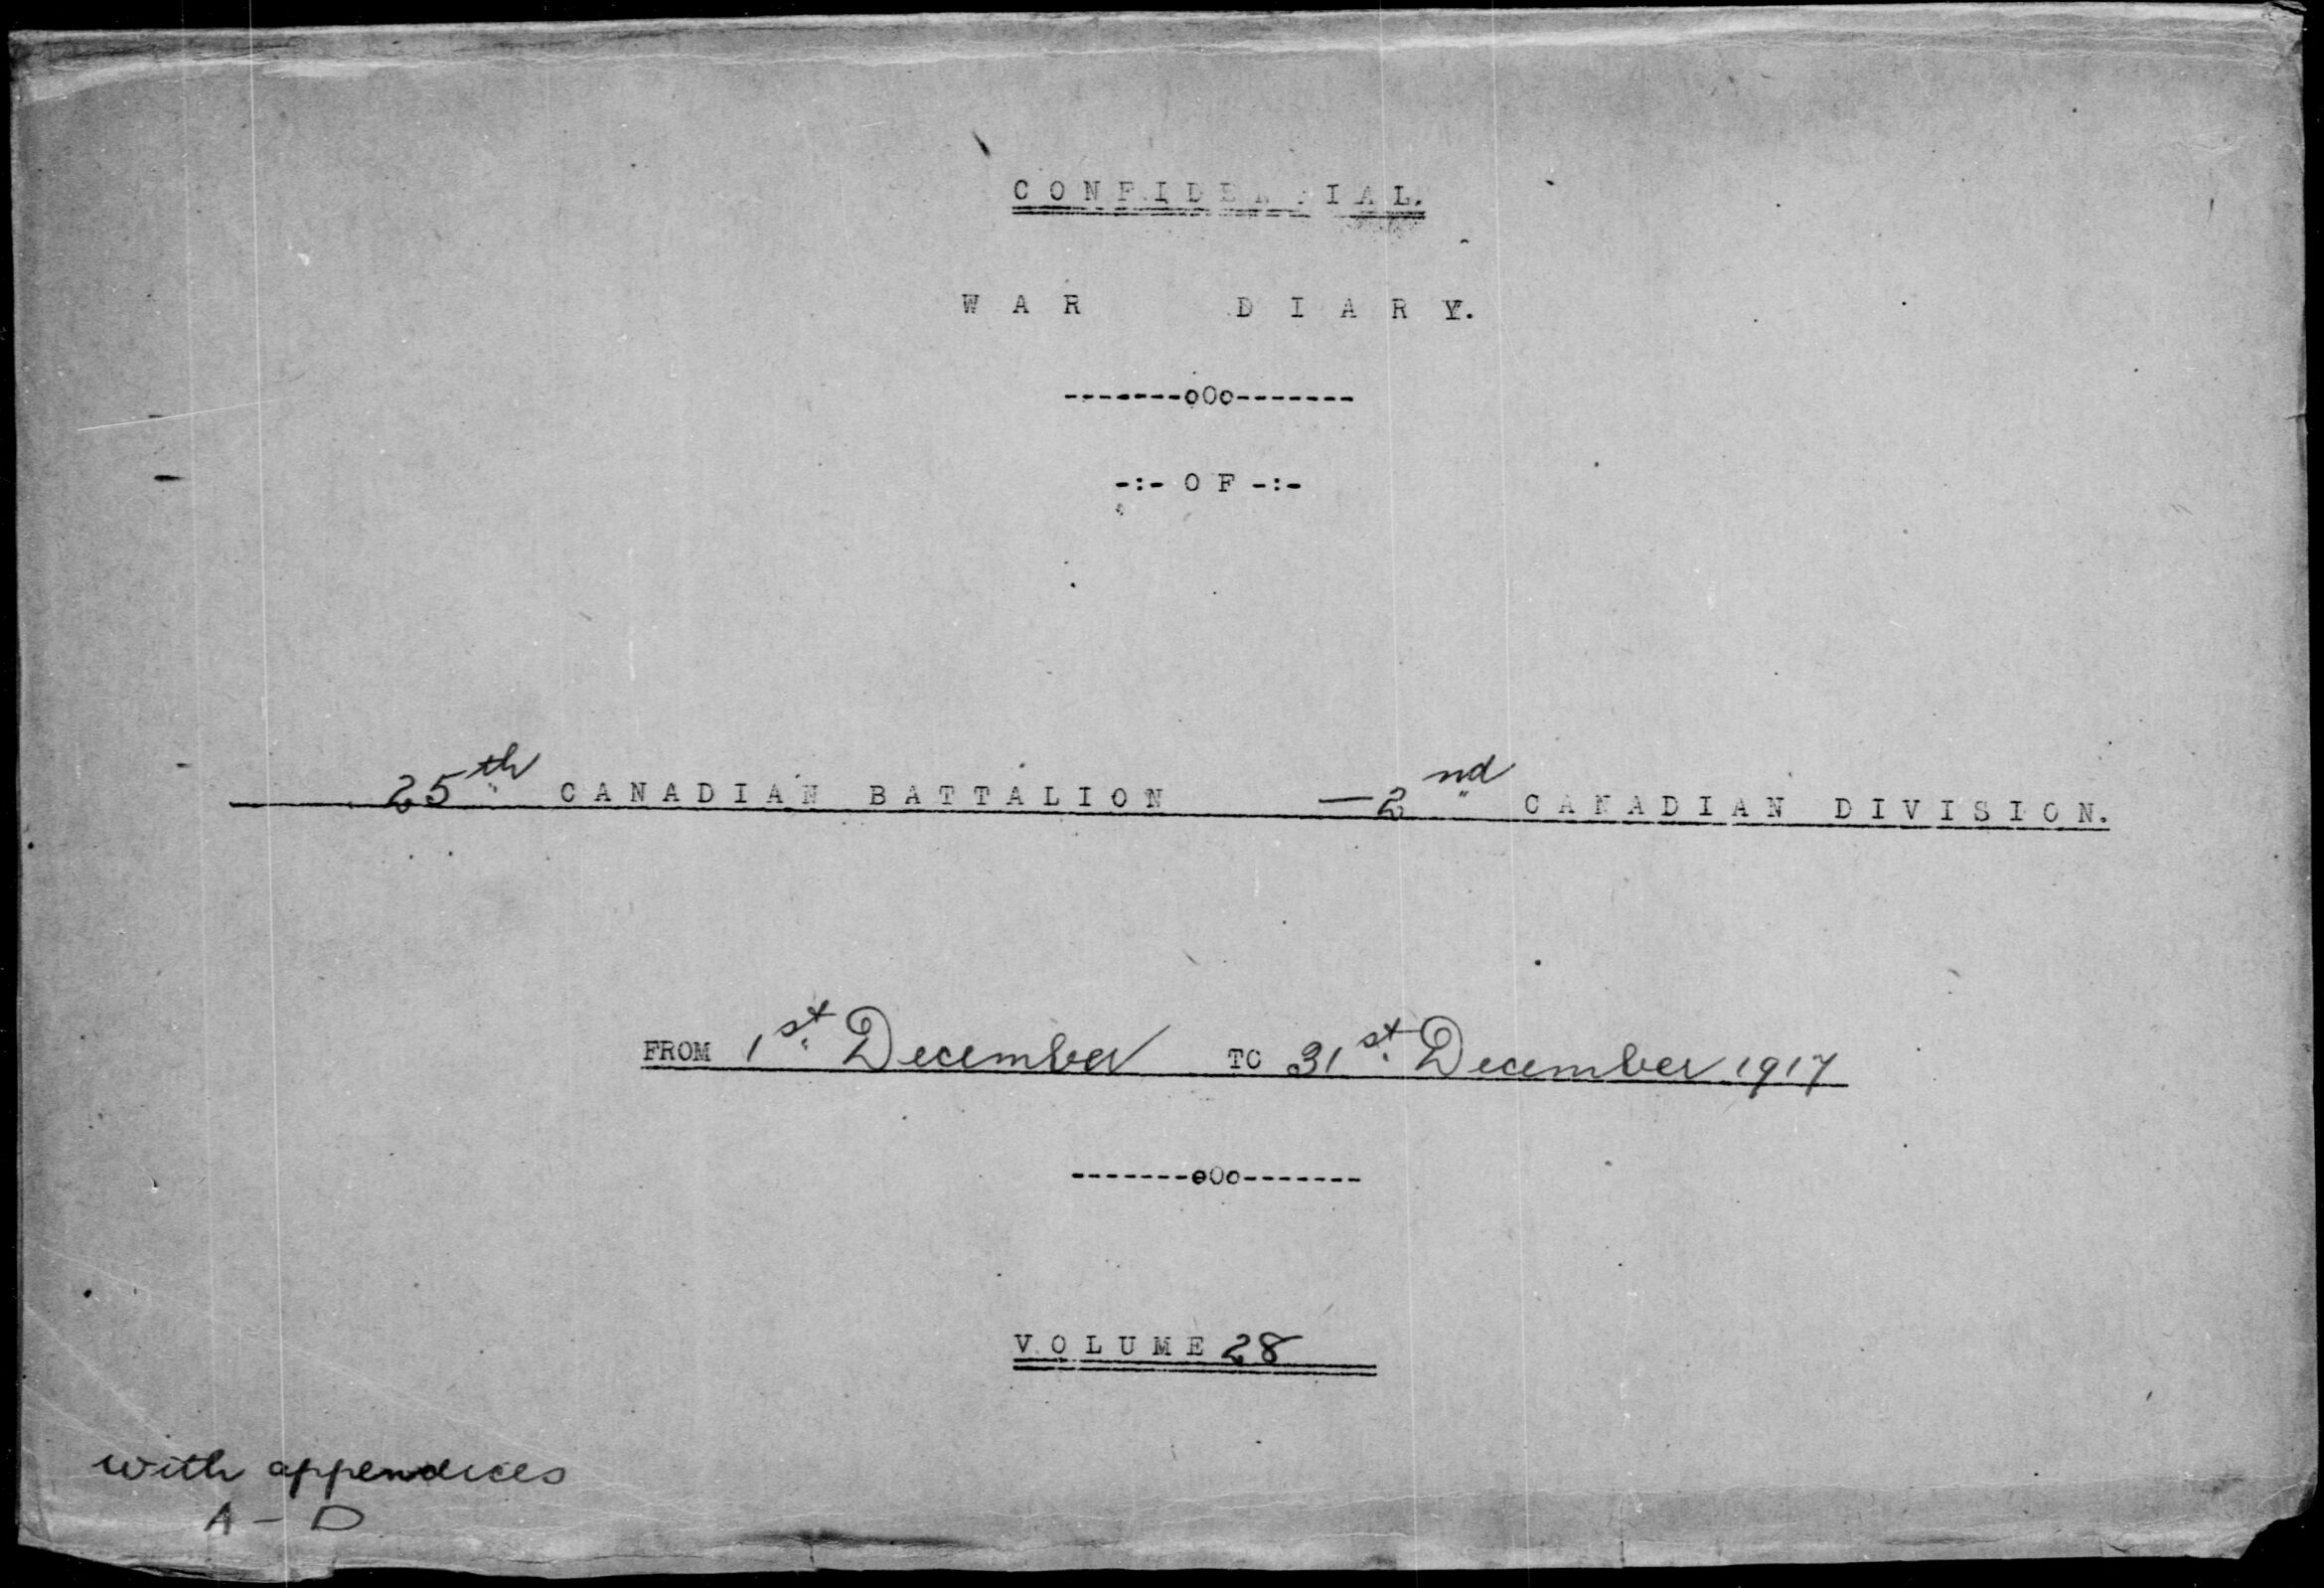 CONFIDENTIAL.
WAR DIARY.
-------oOo-------
-:- OF -:-
25th CANADIAN BATTALION — 2nd CANADIAN DIVISION.
FROM 1st December TO 31st December 1917
-------oOo-------
VOLUME 28
with appendices
A - D